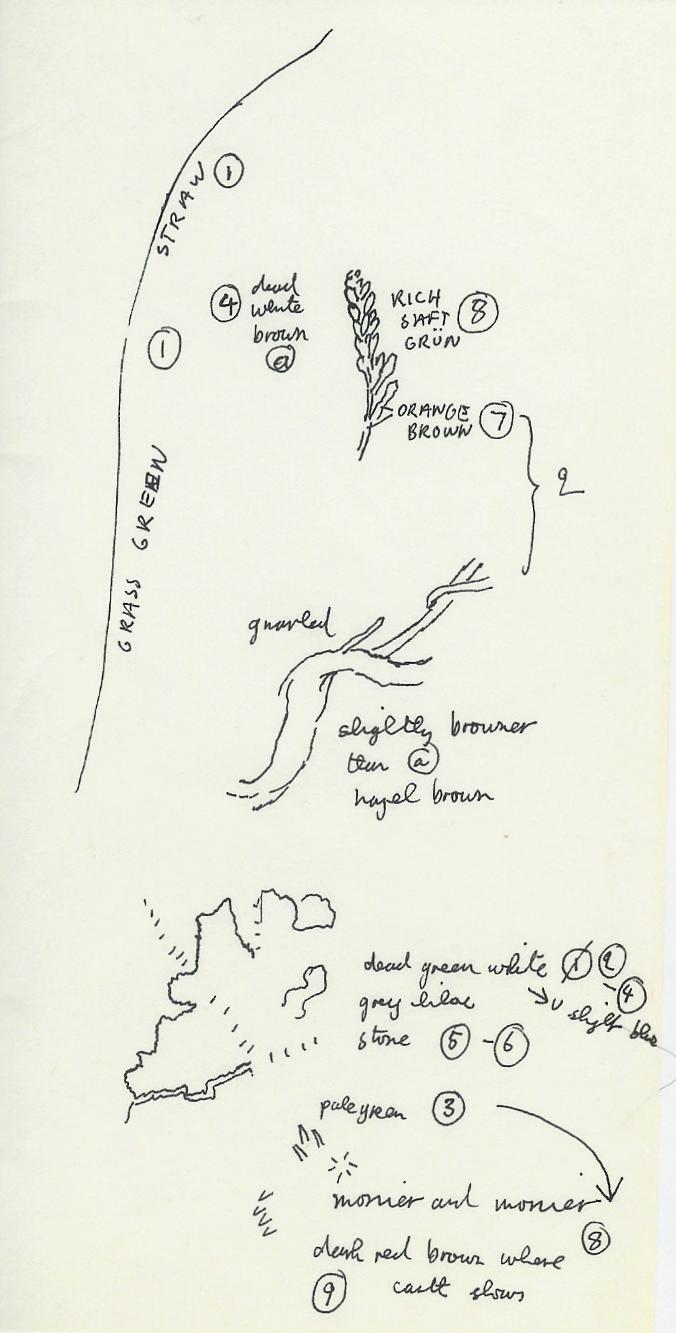 STRAW 1
4 dead
white
brown
a
RICH
SAFT 8
GRÜN
1
ORANGE
BROWN 7
2
GRASS GREEN
gnarled
slightly browner
than a
hazel brown
dead green white 1 2
-4
grey lilac
v slight blue
stone 5 - 6
pale green 3
mossier and mossier
8
dark red brown where
9 earth shows